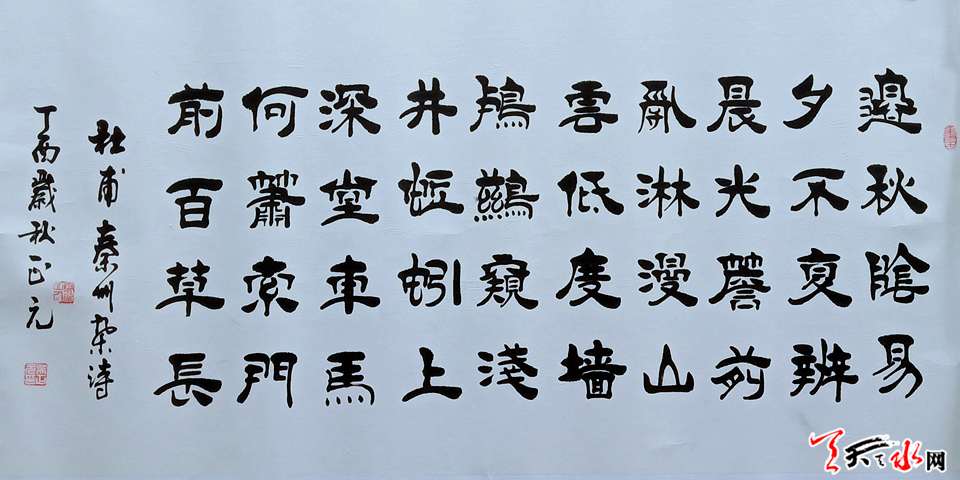 邊秋陰易
夕不复辨
晨光簷前
亂淋漫山
雲低度墙
鸕鷀窺淺
井蚯蚓上
深堂車馬
何蕭索門
前百草長
杜甫秦州杂詩
丁酉歲秋正元
天天水网